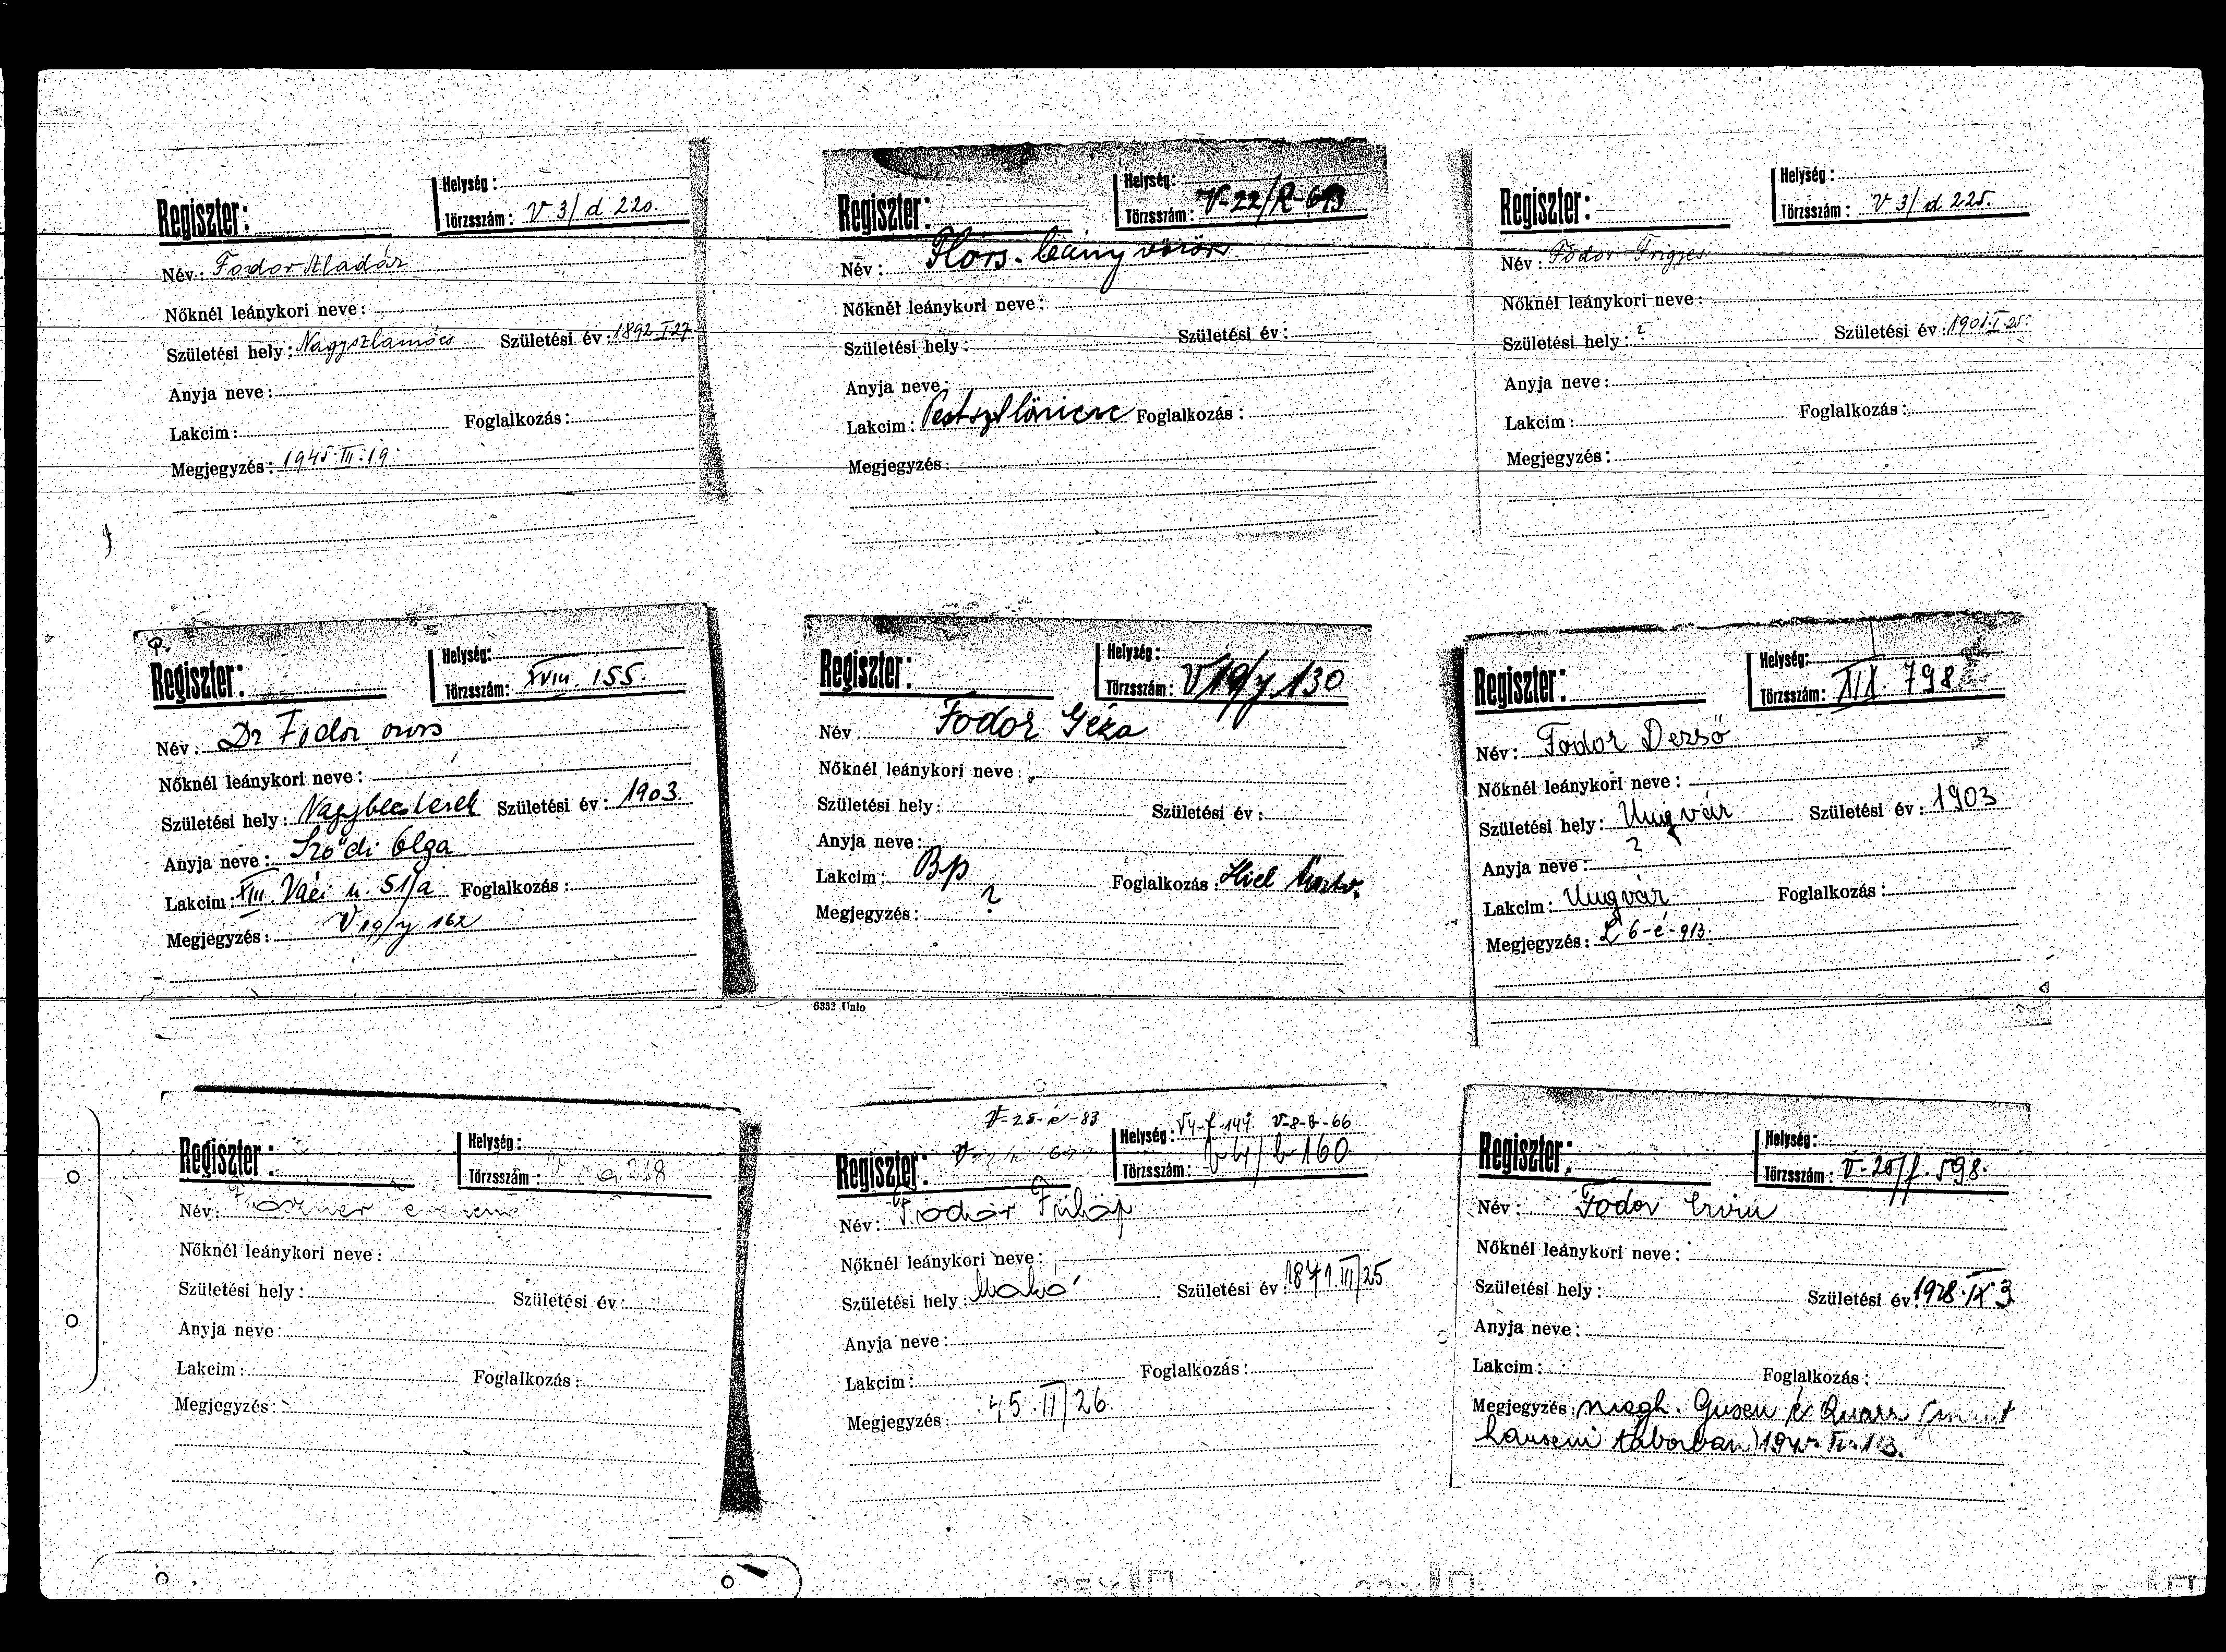 Helység:
Regiszter:
Törzsszám: V 3/d 220.
Név: Fodor Aladár
Nőknél leánykori neve:
Születési hely: Nagyszlamócs Születési év: 1892 I 27
Anyja neve:
Lakcim: Foglalkozás:
Megjegyzés: 1945. III. 19.
Helység:
Regiszter:
Törzsszám: V-22/R-693
Név: leány
Nőknél leánykori neve:
Születési hely: Születési év:
Anyja neve:
Lakcim: Pestsztlőrincz Foglalkozás:
Megjegyzés:
Helység:
Regiszter:
Törzsszám: V 3/d 225.
Név: Fodor Frigyes
Nőknél leánykori neve:
Születési hely: ? Születési év: 1901. I. 25.
Anyja neve:
Lakcim:
Foglalkozás:
Megjegyzés:
Helység:
Regiszter:
Törzsszám: XVIII. 155.
Név: Dr Fodor orvos
Nőknél leánykori neve:
Születési hely: Nagybecskerek Születési év: 1903.
Anyja neve: Sződi Olga
Lakcim: XIII. Váci u. 51/a Foglalkozás:
Megjegyzés: V 19/y 162
Helység:
Regiszter:
Törzsszám: V 19/y 130
Név Fodor Géza
Nőknél leánykori neve:
Születési hely: Születési év:
Anyja neve:
Lakcim: Bp Foglalkozás:
Megjegyzés: ?
6332 Unio
Helység:
Regiszter:
Törzsszám: XIX. 798
Név: Fodor Dezső
Nőknél leánykori neve:
Születési hely: Ungvár Születési év: 1903
Anyja neve: ?
Lakcim: Ungvár Foglalkozás:
Megjegyzés: L 6-é-913.
Helység:
Regiszter:
Törzsszám:
Név:
Nőknél leánykori neve:
Születési hely: Születési év:
Anyja neve:
Lakcim: Foglalkozás:
Megjegyzés:
V-25-é-83
Helység: V4-f-144 V-8-b-66
Regiszter:
Törzsszám: V-4/b-160
Név: Fodor Fülöp
Nőknél leánykori neve:
Születési hely: Makó Születési év: 1871. III/25
Anyja neve:
Lakcim: Foglalkozás:
Megjegyzés 45. II/26.
Helység:
Regiszter:
Törzsszám: V-25/f. 598.
Név: Fodor Ervin
Nőknél leánykori neve:
Születési hely: Születési év: 1928. IX 3
Anyja neve:
Lakcim: Foglalkozás:
Megjegyzés: megh. Gusen
hauseni táborban)